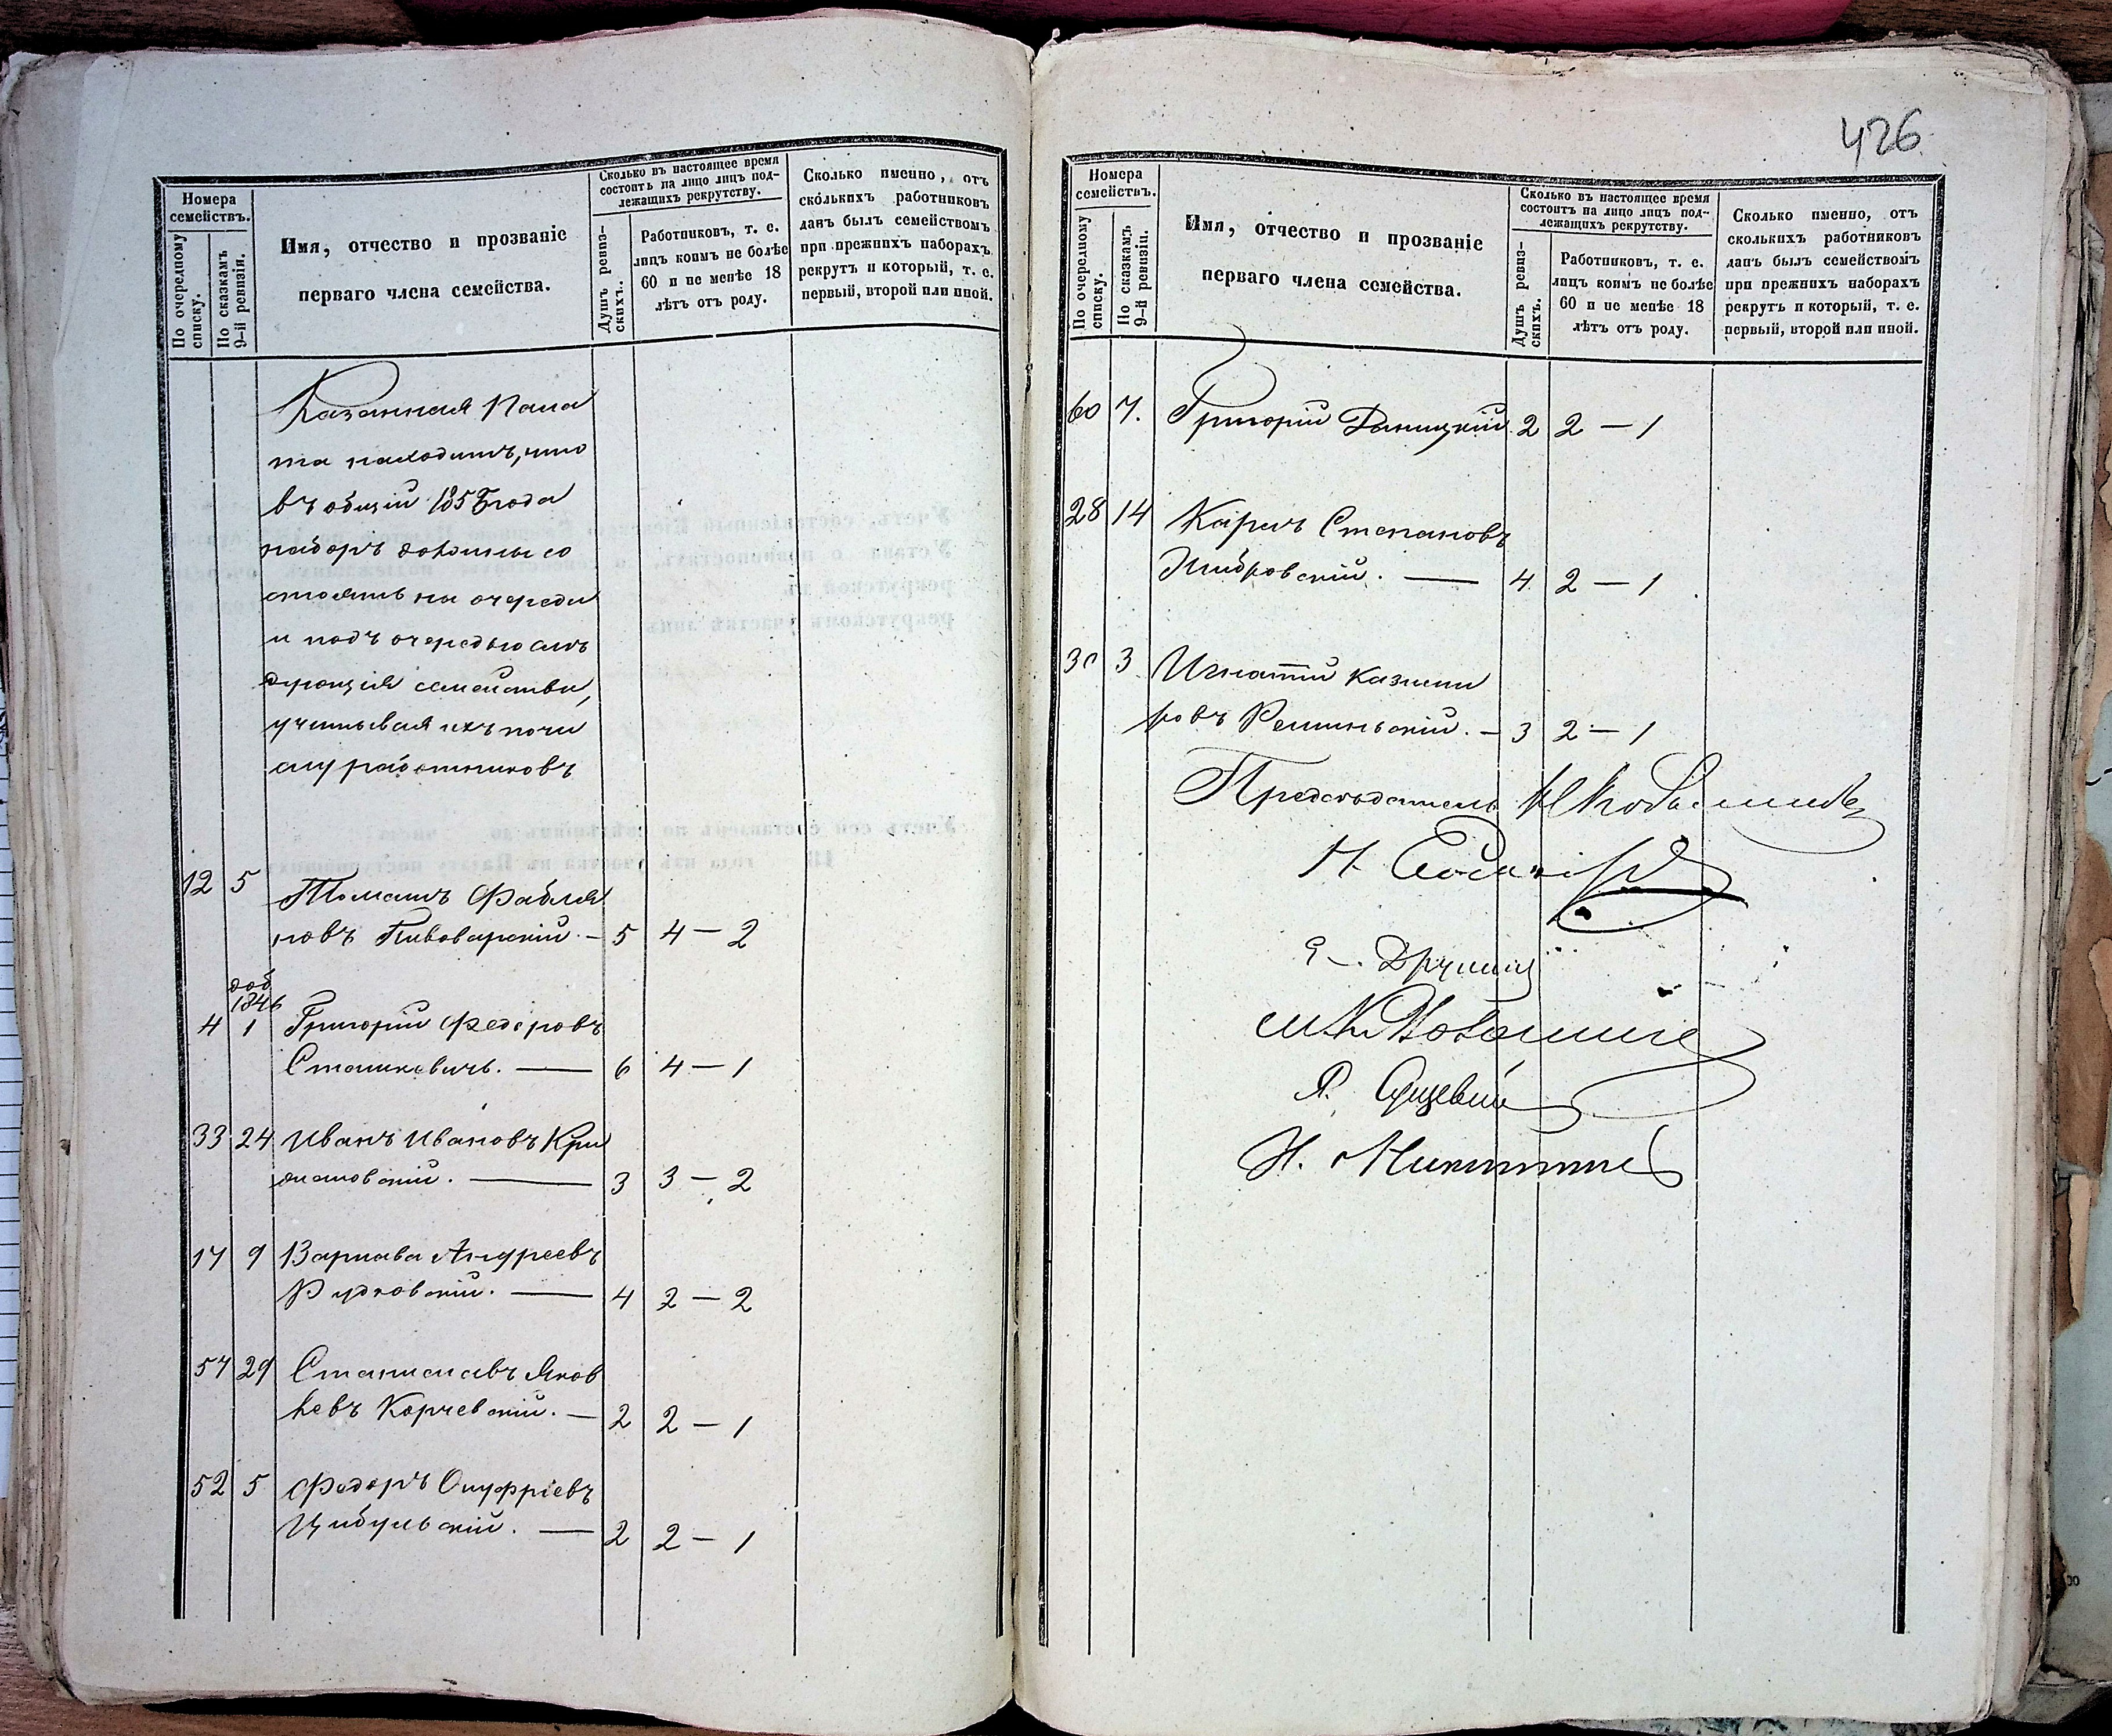 Номера
семействъ.
По очередному
списку.
По сказкамъ
9-й ревизіи.
Имя, отчество и прозваніе
перваго члена семейства.
Сколько въ настоящее время
состоитъ на лицо лицъ под-
лежащихъ рекрутству.
Душъ ревиз-
скихъ.
Работниковъ, т. е.
лицъ коимъ не болѣе
60 и не менѣе 18
лѣтъ отъ роду.
Сколько именно, отъ
сколькихъ работниковъ
данъ былъ семействомъ
при прежнихъ наборахъ
рекрутъ и который, т. е.
первый, второй или иной.
Казенная Пала
та находитъ, что
въ общій 1855 года
наборъ должны со
стоять на очереди
и подъ очередью слѣ
дующія семейства,
учитывая ихъ по чи
слу работниковъ
12 5 Томашъ Фабія
новъ Пивоварскій. — 5 4 — 2
доб
1846
4 1 Григорій Федоровъ
Сташкевичъ. — 6 4 — 1
33 24 Иванъ Ивановъ Кри
жановскій. — 3 3 — 2
17 9 Варнава Андреевъ
Рудковскій. — 4 2 — 2
57 29 Станиславъ Яков
левъ Корчевскій. — 2 2 — 1
52 5 Федоръ Онуфріевъ
Цибульскій. — 2 2 — 1
426
Номера
семействъ.
По очередному
списку.
По сказкамъ
9-й ревизіи.
Имя, отчество и прозваніе
перваго члена семейства.
Сколько въ настоящее время
состоитъ на лицо лицъ под-
лежащихъ рекрутству.
Душъ ревиз-
скихъ.
Работниковъ, т. е.
лицъ коимъ не болѣе
60 и не менѣе 18
лѣтъ отъ роду.
Сколько именно, отъ
сколькихъ работниковъ
данъ былъ семействомъ
при прежнихъ наборахъ
рекрутъ и который, т. е.
первый, второй или иной.
60 7. Григорій 2 2 — 1
28 14 Карпъ Степановъ
— 4 2 — 1
30 3 Игнатій Казими
ровъ — 3 2 — 1
Предсѣдатель